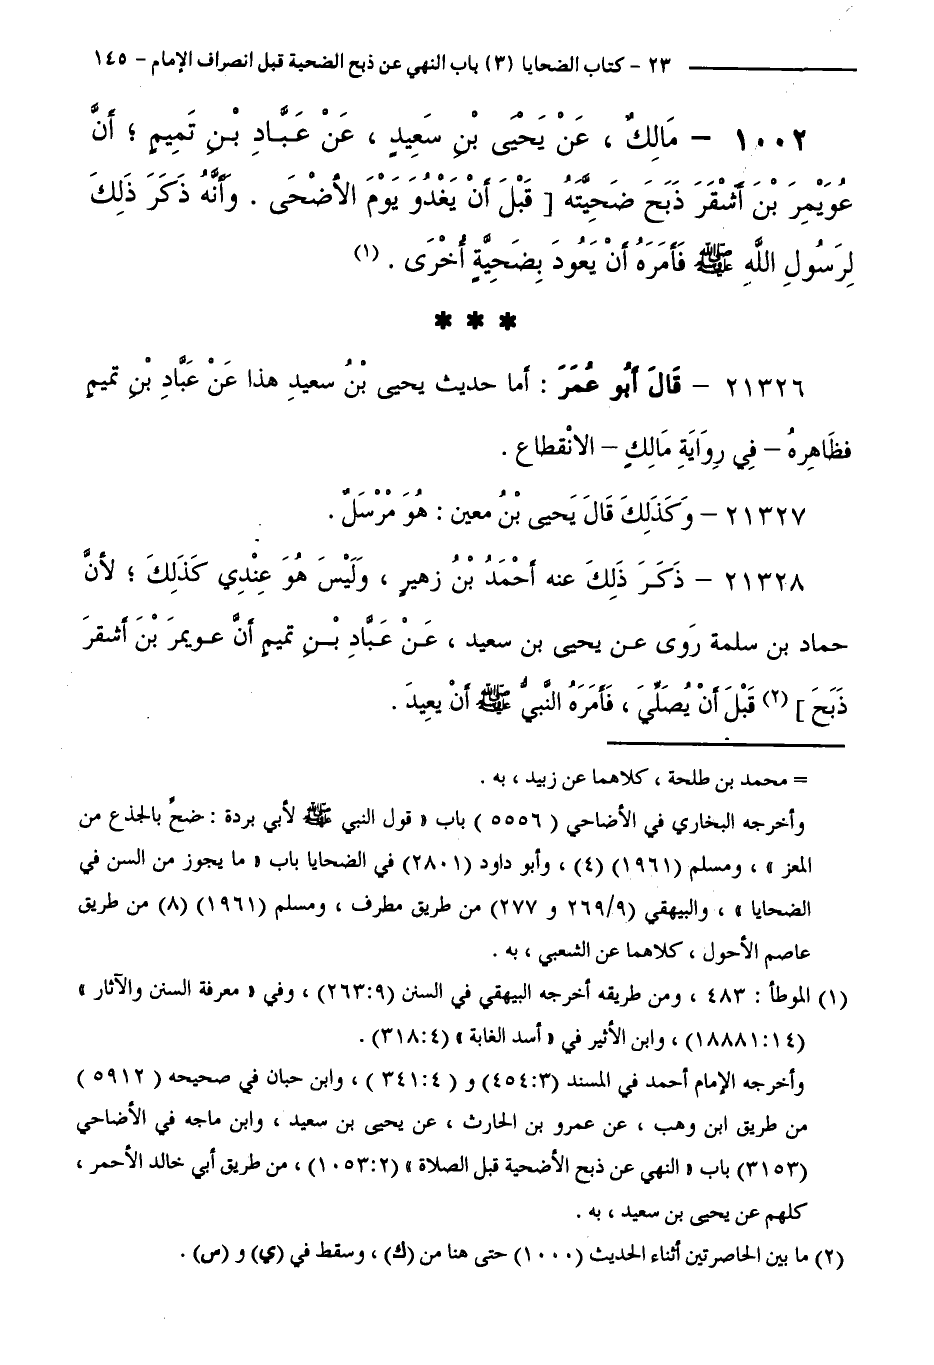 ٢٣ – كتاب الضحايا (٣) باب النهي عن ذبح الضحية قبل انصراف الإمام – ١٤٥
١٠٠٢ – مَالِكٌ ، عَنْ يَحْيَى بْنِ سَعِيدٍ ، عَنْ عَبَّادِ بْنِ تَمِيمٍ ؛ أَنَّ
عُوَيْمِرَ بْنَ أَشْقَرَ ذَبَحَ ضَحِيَّتَهُ [ قَبْلَ أَنْ يَغْدُوَ يَوْمَ الأَضْحَى . وَأَنَّهُ ذَكَرَ ذَلِكَ
لِرَسُولِ اللَّهِ ﷺ فَأَمَرَهُ أَنْ يَعُودَ بِضَحِيَّةٍ أُخْرَى . (١)
* * *
٢١٣٢٦ – قَالَ أَبُو عُمَرَ : أما حديث يحيى بْنُ سعيدٍ هذا عَنْ عَبَّادِ بْنِ تميمٍ
فظَاهِرهُ – فِي رِوَايَةِ مَالِكٍ – الانْقطاع .
٢١٣٢٧ – وَكَذَلِكَ قَالَ يَحيى بْنُ معين : هُوَ مْرْسَلٌ .
٢١٣٢٨ – ذَكَرَ ذَلِكَ عنه أحْمَدُ بْنُ زهيرٍ ، وَلَيْسَ هُوَ عِنْدِي كَذَلِكَ ؛ لأنَّ
حماد بن سلمة رَوى عـن يحيى بن سعيد ، عَـنْ عَبَّادِ بْـنِ تميمٍ أنَّ عـويمرَ بْنَ أشقرَ
ذَبَحَ ] (٢) قَبْلَ أنْ يُصَلِّيَ ، فَأمَرَهُ النَّبيُّ ﷺ أنْ يعِيدَ .
= محمد بن طلحة ، كلاهما عن زبيد ، به .
وأخرجه البخاري في الأضاحي ( ٥٥٥٦ ) باب « قول النبي ﷺ لأبي بردة : ضحِّ بالجذع من
المعز » ، ومسلم (١٩٦١) (٤) ، وأبو داود (٢٨٠١) في الضحايا باب « ما يجوز من السن في
الضحايا » ، والبيهقي (٢٦٩/٩ و ٢٧٧) من طريق مطرف ، ومسلم (١٩٦١) (٨) من طريق
عاصم الأحول ، كلاهما عن الشعبي ، به .
(١) الموطأ : ٤٨٣ ، ومن طريقه أخرجه البيهقي في السنن (٢٦٣:٩) ، وفي « معرفة السنن والآثار »
(١٨٨٨١:١٤) ، وابن الأثير في « أسد الغابة » (٣١٨:٤) .
وأخرجه الإمام أحمد في المسند (٤٥٤:٣) و ( ٣٤١:٤ ) ، وابن حبان في صحيحه ( ٥٩١٢ )
من طريق ابن وهب ، عن عمرو بن الحارث ، عن يحيى بن سعيد ، وابن ماجه في الأضاحي
(٣١٥٣) باب « النهي عن ذبح الأضحية قبل الصلاة » (١٠٥٣:٢) ، من طريق أبي خالد الأحمر ،
كلهم عن يحيى بن سعيد ، به .
(٢) ما بين الحاصرتين أثناء الحديث (١٠٠٠) حتى هنا من (ك) ، وسقط في (ي) و (ص) .